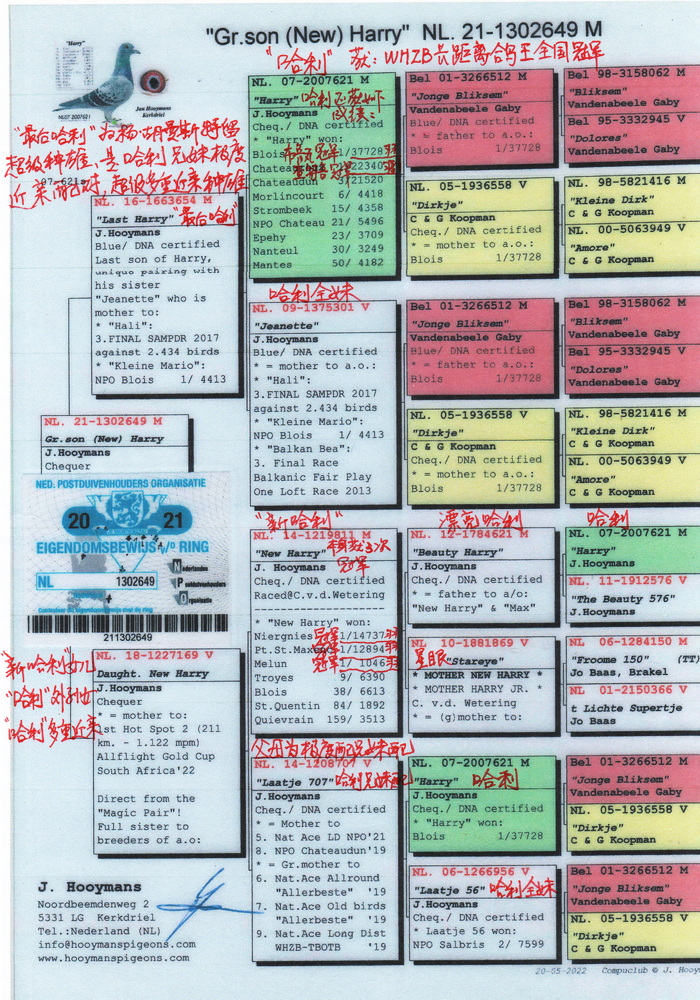 "Gr.son (New) Harry" NL. 21-1302649 M
"Harry"
NL07 2007621
Jan Hooymans
Kerkdriel
"哈利" 获: WHZB长距离鸽王全国冠军
"最后哈利"
超级种雄, 是哈利兄妹极度
近亲配对, 超级多重近亲种雄
NL. 16-1663654 M
"Last Harry"
"最后哈利"
J.Hooymans
Blue/ DNA certified
Last son of Harry,
unique pairing with
his sister
"Jeanette" who is
mother to:
* "Hali":
3.FINAL SAMPDR 2017
against 2.434 birds
* "Kleine Mario":
NPO Blois 1/ 4413
NL. 21-1302649 M
Gr.son (New) Harry
J.Hooymans
Chequer
NED. POSTDUIVENHOUDERS ORGANISATIE
20 21
EIGENDOMSBEWIJS v/d RING
NL 1302649
Nederlandse
Postduivenhouders
Organisatie
211302649
"新哈利"女儿
"哈利"外孙女
"哈利"多重近亲
NL. 18-1227169 V
Daught. New Harry
J.Hooymans
Chequer
* = mother to:
1st Hot Spot 2 (211
km. - 1.122 mpm)
Allflight Gold Cup
South Africa'22
Direct from the
"Magic Pair"!
Full sister to
breeders of a.o:
J. Hooymans
Noordbeemdenweg 2
5331 LG Kerkdriel
Tel.:Nederland (NL)
info@hooymanspigeons.com
www.hooymanspigeons.com
NL. 07-2007621 M
"Harry"
J.Hooymans
Cheq./ DNA certified
* "Harry" won:
Blois 1/37728
Chateaudun
Chateaudun 3/21520
Morlincourt 6/ 4418
Strombeek 15/ 4358
NPO Chateau 21/ 5496
Epehy 23/ 3709
Nanteul 30/ 3249
Mantes 50/ 4182
哈利全妹
NL. 09-1375301 V
"Jeanette"
J.Hooymans
Blue/ DNA certified
* = mother to a.o.:
* "Hali":
3.FINAL SAMPDR 2017
against 2.434 birds
* "Kleine Mario":
NPO Blois 1/ 4413
* "Balkan Bea":
3. Final Race
Balkanic Fair Play
One Loft Race 2013
"新哈利"
NL. 14-1219811 M
"New Harry"
J. Hooymans
Cheq./ DNA certified
Raced@C.v.d.Wetering
--------------------
* "New Harry" won:
Niergnies 1/14737
Pt.St.Maxence 1/12894
Melun 1/ 1046
Troyes 9/ 6390
Blois 38/ 6613
St.Quentin 84/ 1892
Quievrain 159/ 3513
父母为极度配兄妹配
NL. 14-1208707 V
"Laatje 707"
哈利兄妹配
J.Hooymans
Cheq./ DNA certified
* = Mother to
5. Nat Ace LD NPO'21
8. NPO Chateaudun'19
* = Gr.mother to
6. Nat.Ace Allround
"Allerbeste" '19
7. Nat.Ace Old birds
"Allerbeste" '19
9. Nat.Ace Long Dist
WHZB-TBOTB '19
Bel 01-3266512 M
"Jonge Bliksem"
Vandenabeele Gaby
Blue/ DNA certified
* = father to a.o:
Blois 1/37728
NL. 05-1936558 V
"Dirkje"
C & G Koopman
Cheq./ DNA certified
* = mother to a.o.:
Blois 1/37728
Bel 01-3266512 M
"Jonge Bliksem"
Vandenabeele Gaby
Blue/ DNA certified
* = father to a.o:
Blois 1/37728
NL. 05-1936558 V
"Dirkje"
C & G Koopman
Cheq./ DNA certified
* = mother to a.o.:
Blois 1/37728
漂亮哈利
NL. 12-1784621 M
"Beauty Harry"
J.Hooymans
Cheq./ DNA certified
* = father to a/o:
"New Harry" & "Max"
NL. 10-1881869 V
星眼
"Stareye"
* MOTHER NEW HARRY *
* MOTHER HARRY JR. *
C. v.d. Wetering
* = (g)mother to:
NL. 07-2007621 M
"Harry"
哈利
J.Hooymans
Cheq./ DNA certified
* "Harry" won:
Blois 1/37728
NL. 06-1266956 V
"Laatje 56"
哈利全妹
J.Hooymans
Cheq./ DNA certified
* Laatje 56 won:
NPO Salbris 2/ 7599
Bel 98-3158062 M
"Bliksem"
Vandenabeele Gaby
Bel 95-3332945 V
"Dolores"
Vandenabeele Gaby
NL. 98-5821416 M
"Kleine Dirk"
C & G Koopman
NL. 00-5063949 V
"Amore"
C & G Koopman
Bel 98-3158062 M
"Bliksem"
Vandenabeele Gaby
Bel 95-3332945 V
"Dolores"
Vandenabeele Gaby
NL. 98-5821416 M
"Kleine Dirk"
C & G Koopman
NL. 00-5063949 V
"Amore"
C & G Koopman
哈利
NL. 07-2007621 M
"Harry"
J.Hooymans
NL. 11-1912576 V
"The Beauty 576"
J.Hooymans
NL 06-1284150 M
"Froome 150" (TT)
Jo Baas, Brakel
NL 01-2150366 V
t Lichte Supertje
Jo Baas
Bel 01-3266512 M
"Jonge Bliksem"
Vandenabeele Gaby
NL. 05-1936558 V
"Dirkje"
C & G Koopman
Bel 01-3266512 M
"Jonge Bliksem"
Vandenabeele Gaby
NL. 05-1936558 V
"Dirkje"
C & G Koopman
20-05-2022 Compuclub © J. Hooy